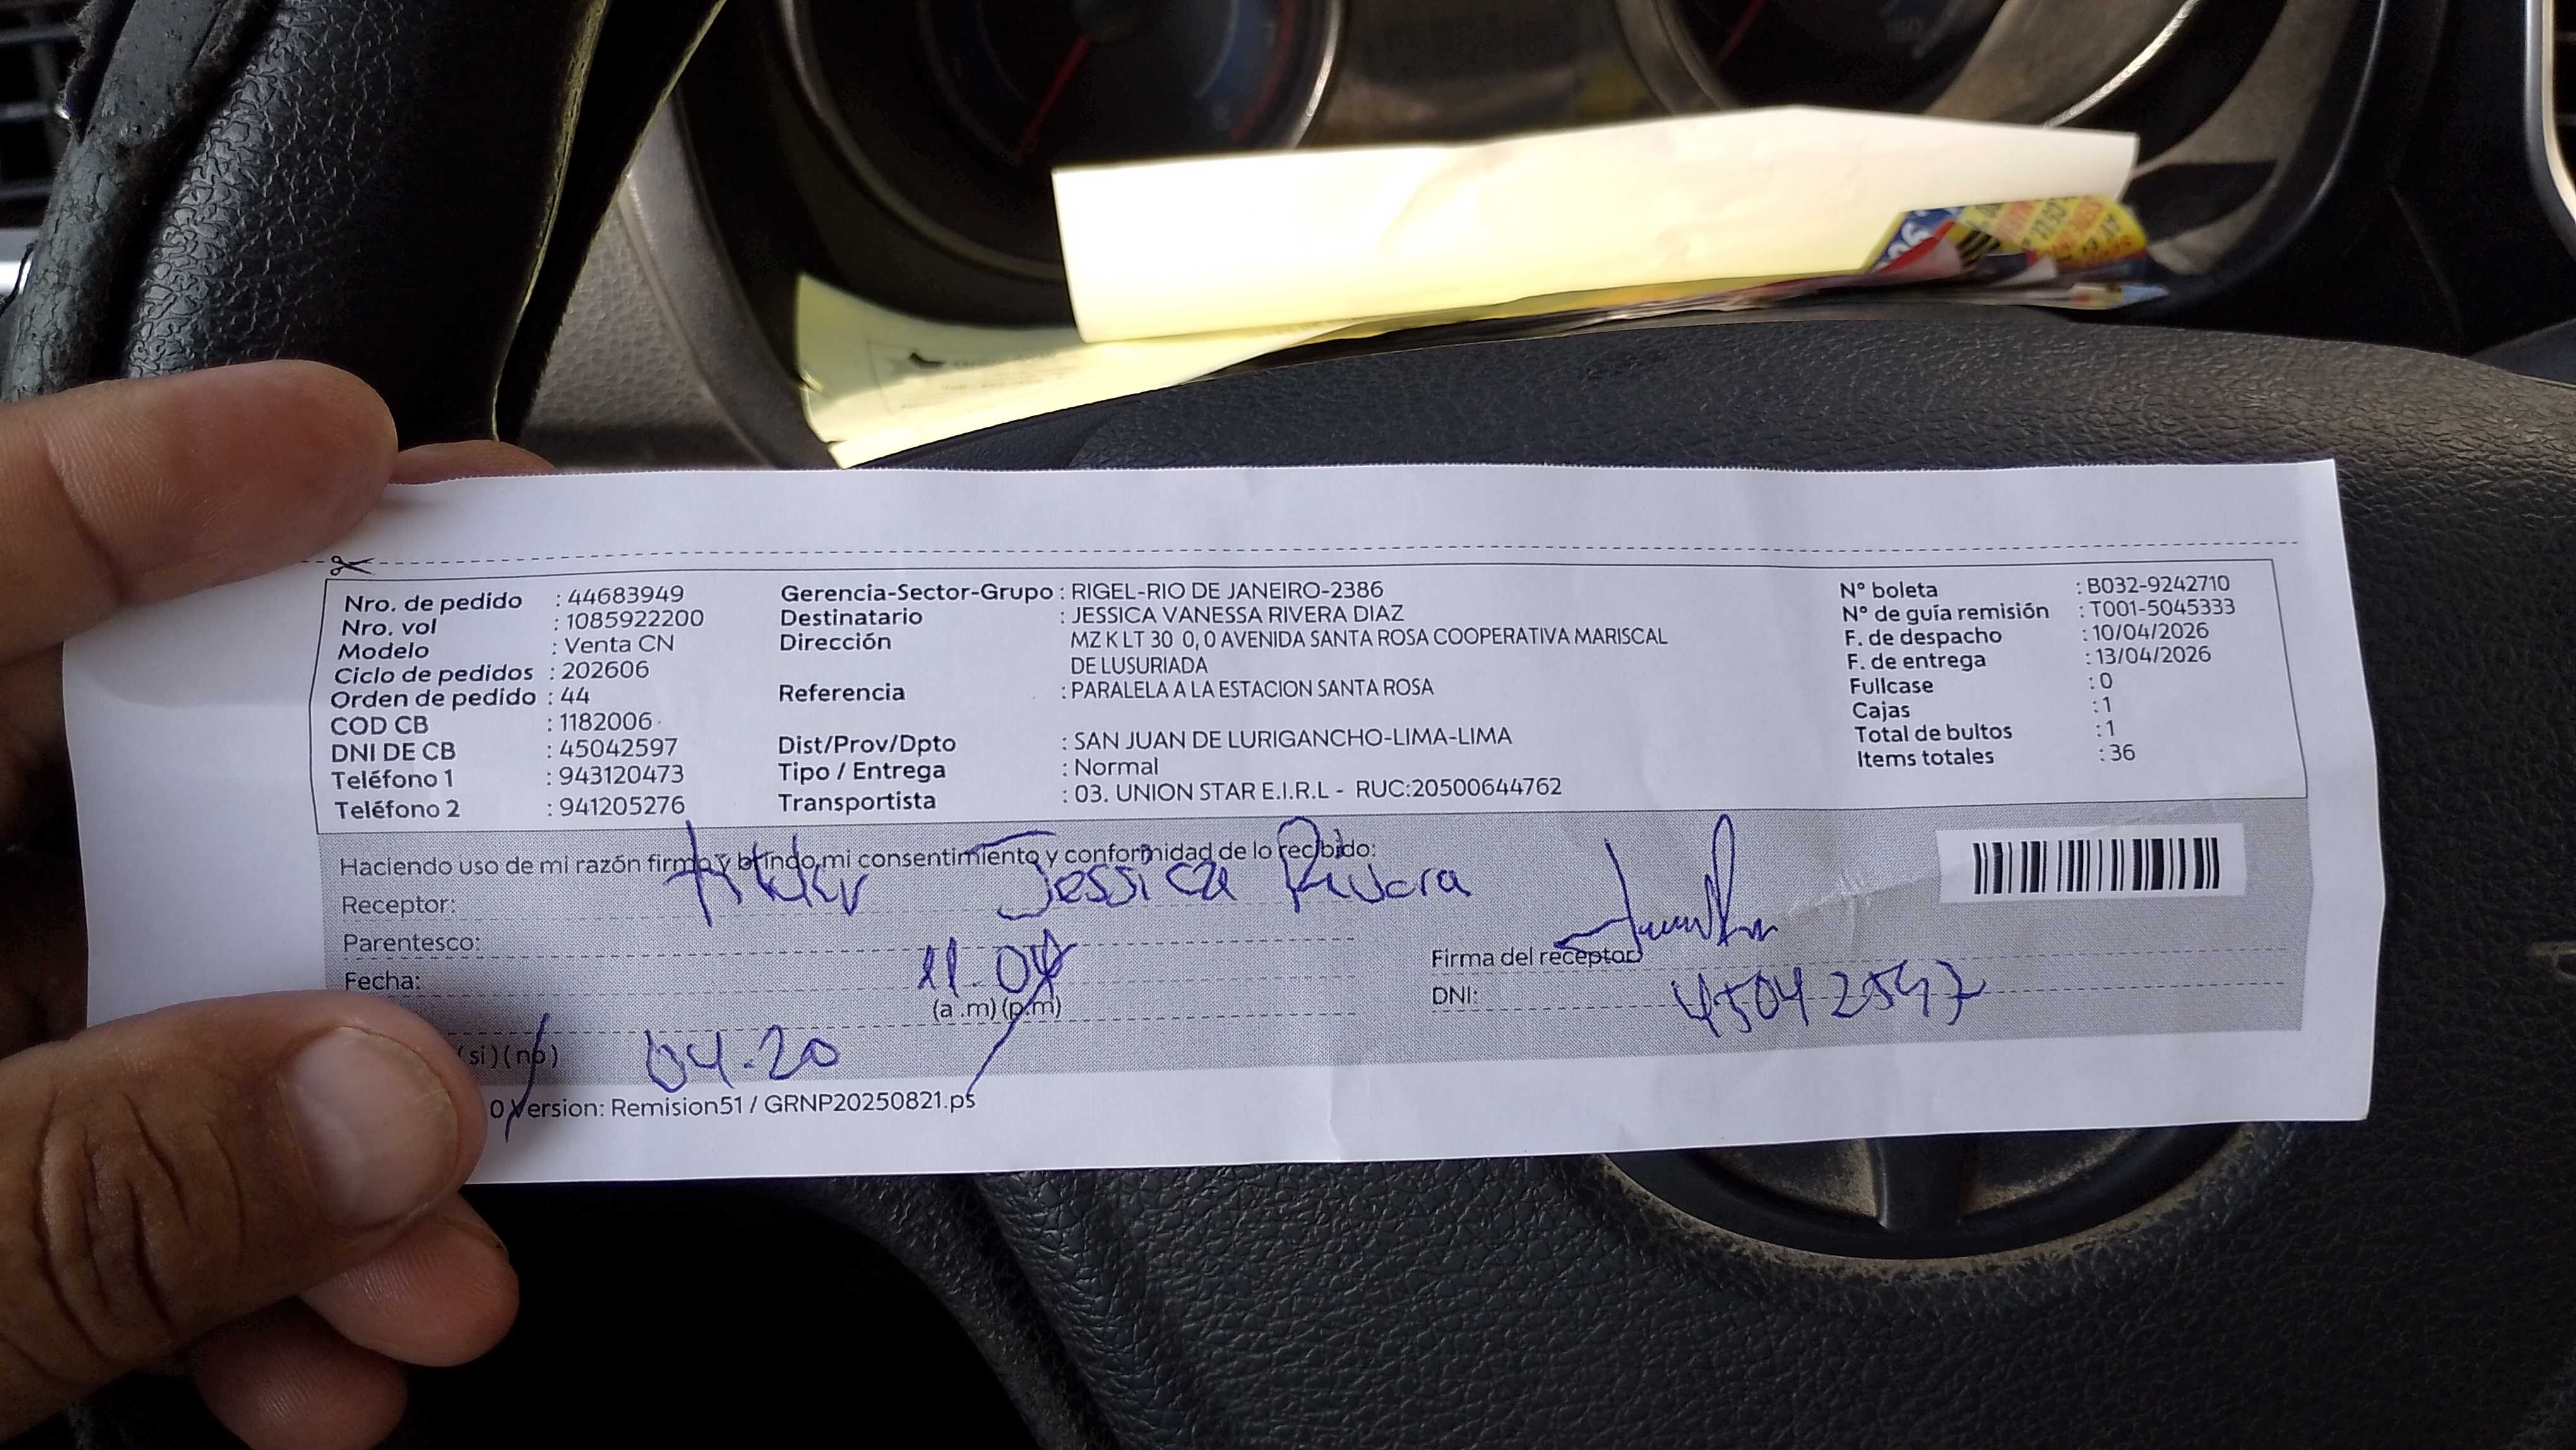 Nro. de pedido : 44683949
Nro. vol : 1085922200
Modelo : Venta CN
Ciclo de pedidos : 202606
Orden de pedido : 44
COD CB : 1182006
DNI DE CB : 45042597
Teléfono 1 : 943120473
Teléfono 2 : 941205276
Gerencia-Sector-Grupo : RIGEL-RIO DE JANEIRO-2386
Destinatario : JESSICA VANESSA RIVERA DIAZ
Dirección MZ K LT 30 0, 0 AVENIDA SANTA ROSA COOPERATIVA MARISCAL
DE LUSURIADA
Referencia : PARALELA A LA ESTACION SANTA ROSA
Dist/Prov/Dpto : SAN JUAN DE LURIGANCHO-LIMA-LIMA
Tipo / Entrega : Normal
Transportista : 03. UNION STAR E.I.R.L - RUC:20500644762
N° boleta : B032-9242710
N° de guía remisión : T001-5045333
F. de despacho : 10/04/2026
F. de entrega : 13/04/2026
Fullcase : 0
Cajas : 1
Total de bultos : 1
Items totales : 36
Haciendo uso de mi razón firma y brindo mi consentimiento y conformidad de lo recibido:
Receptor: Jessica Rivera
Parentesco:
Fecha: 11.04
(a .m) (p.m)
(si) (no) 04.20
Firma del receptor
DNI: 45042597
0 Version: Remision51 / GRNP20250821.ps